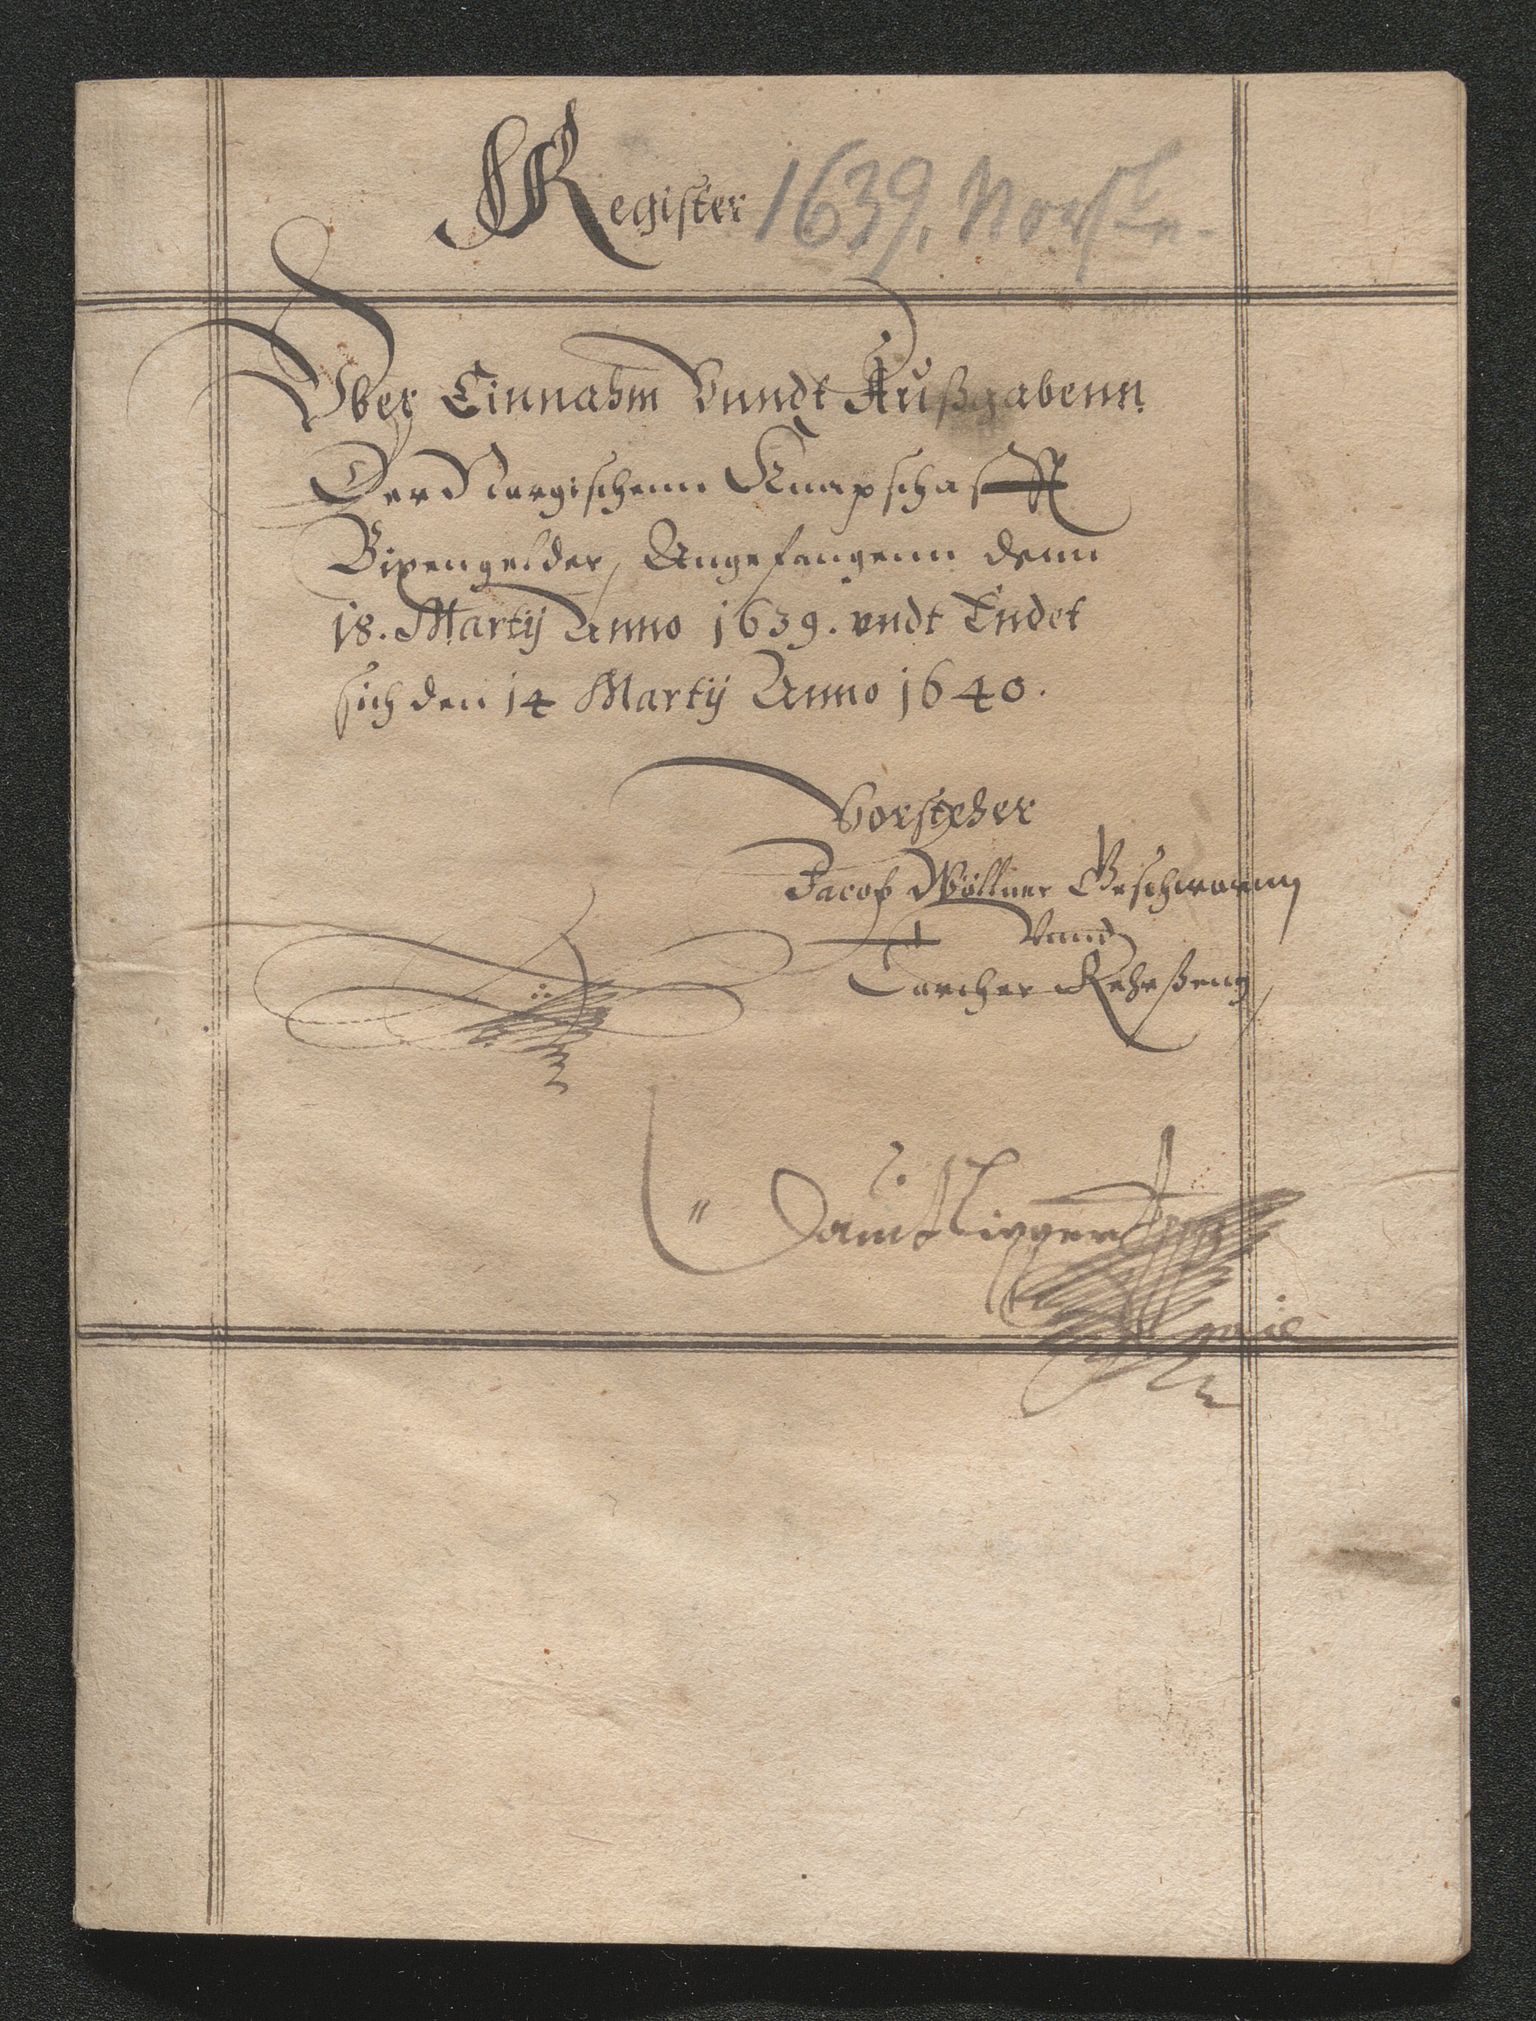 Register 1639. Norske.
Vber Einnahm Vnndt Außgabenn
Der Norgischenn Knapschafft
Bixengelder, Angefangenn denn
18. Martij Anno 1639. vndt Endet
sich den 14 Martij Anno 1640.
Vorsteher
Jacob Wöllner Geschwornn
Vnnd
Karcher
Dauit